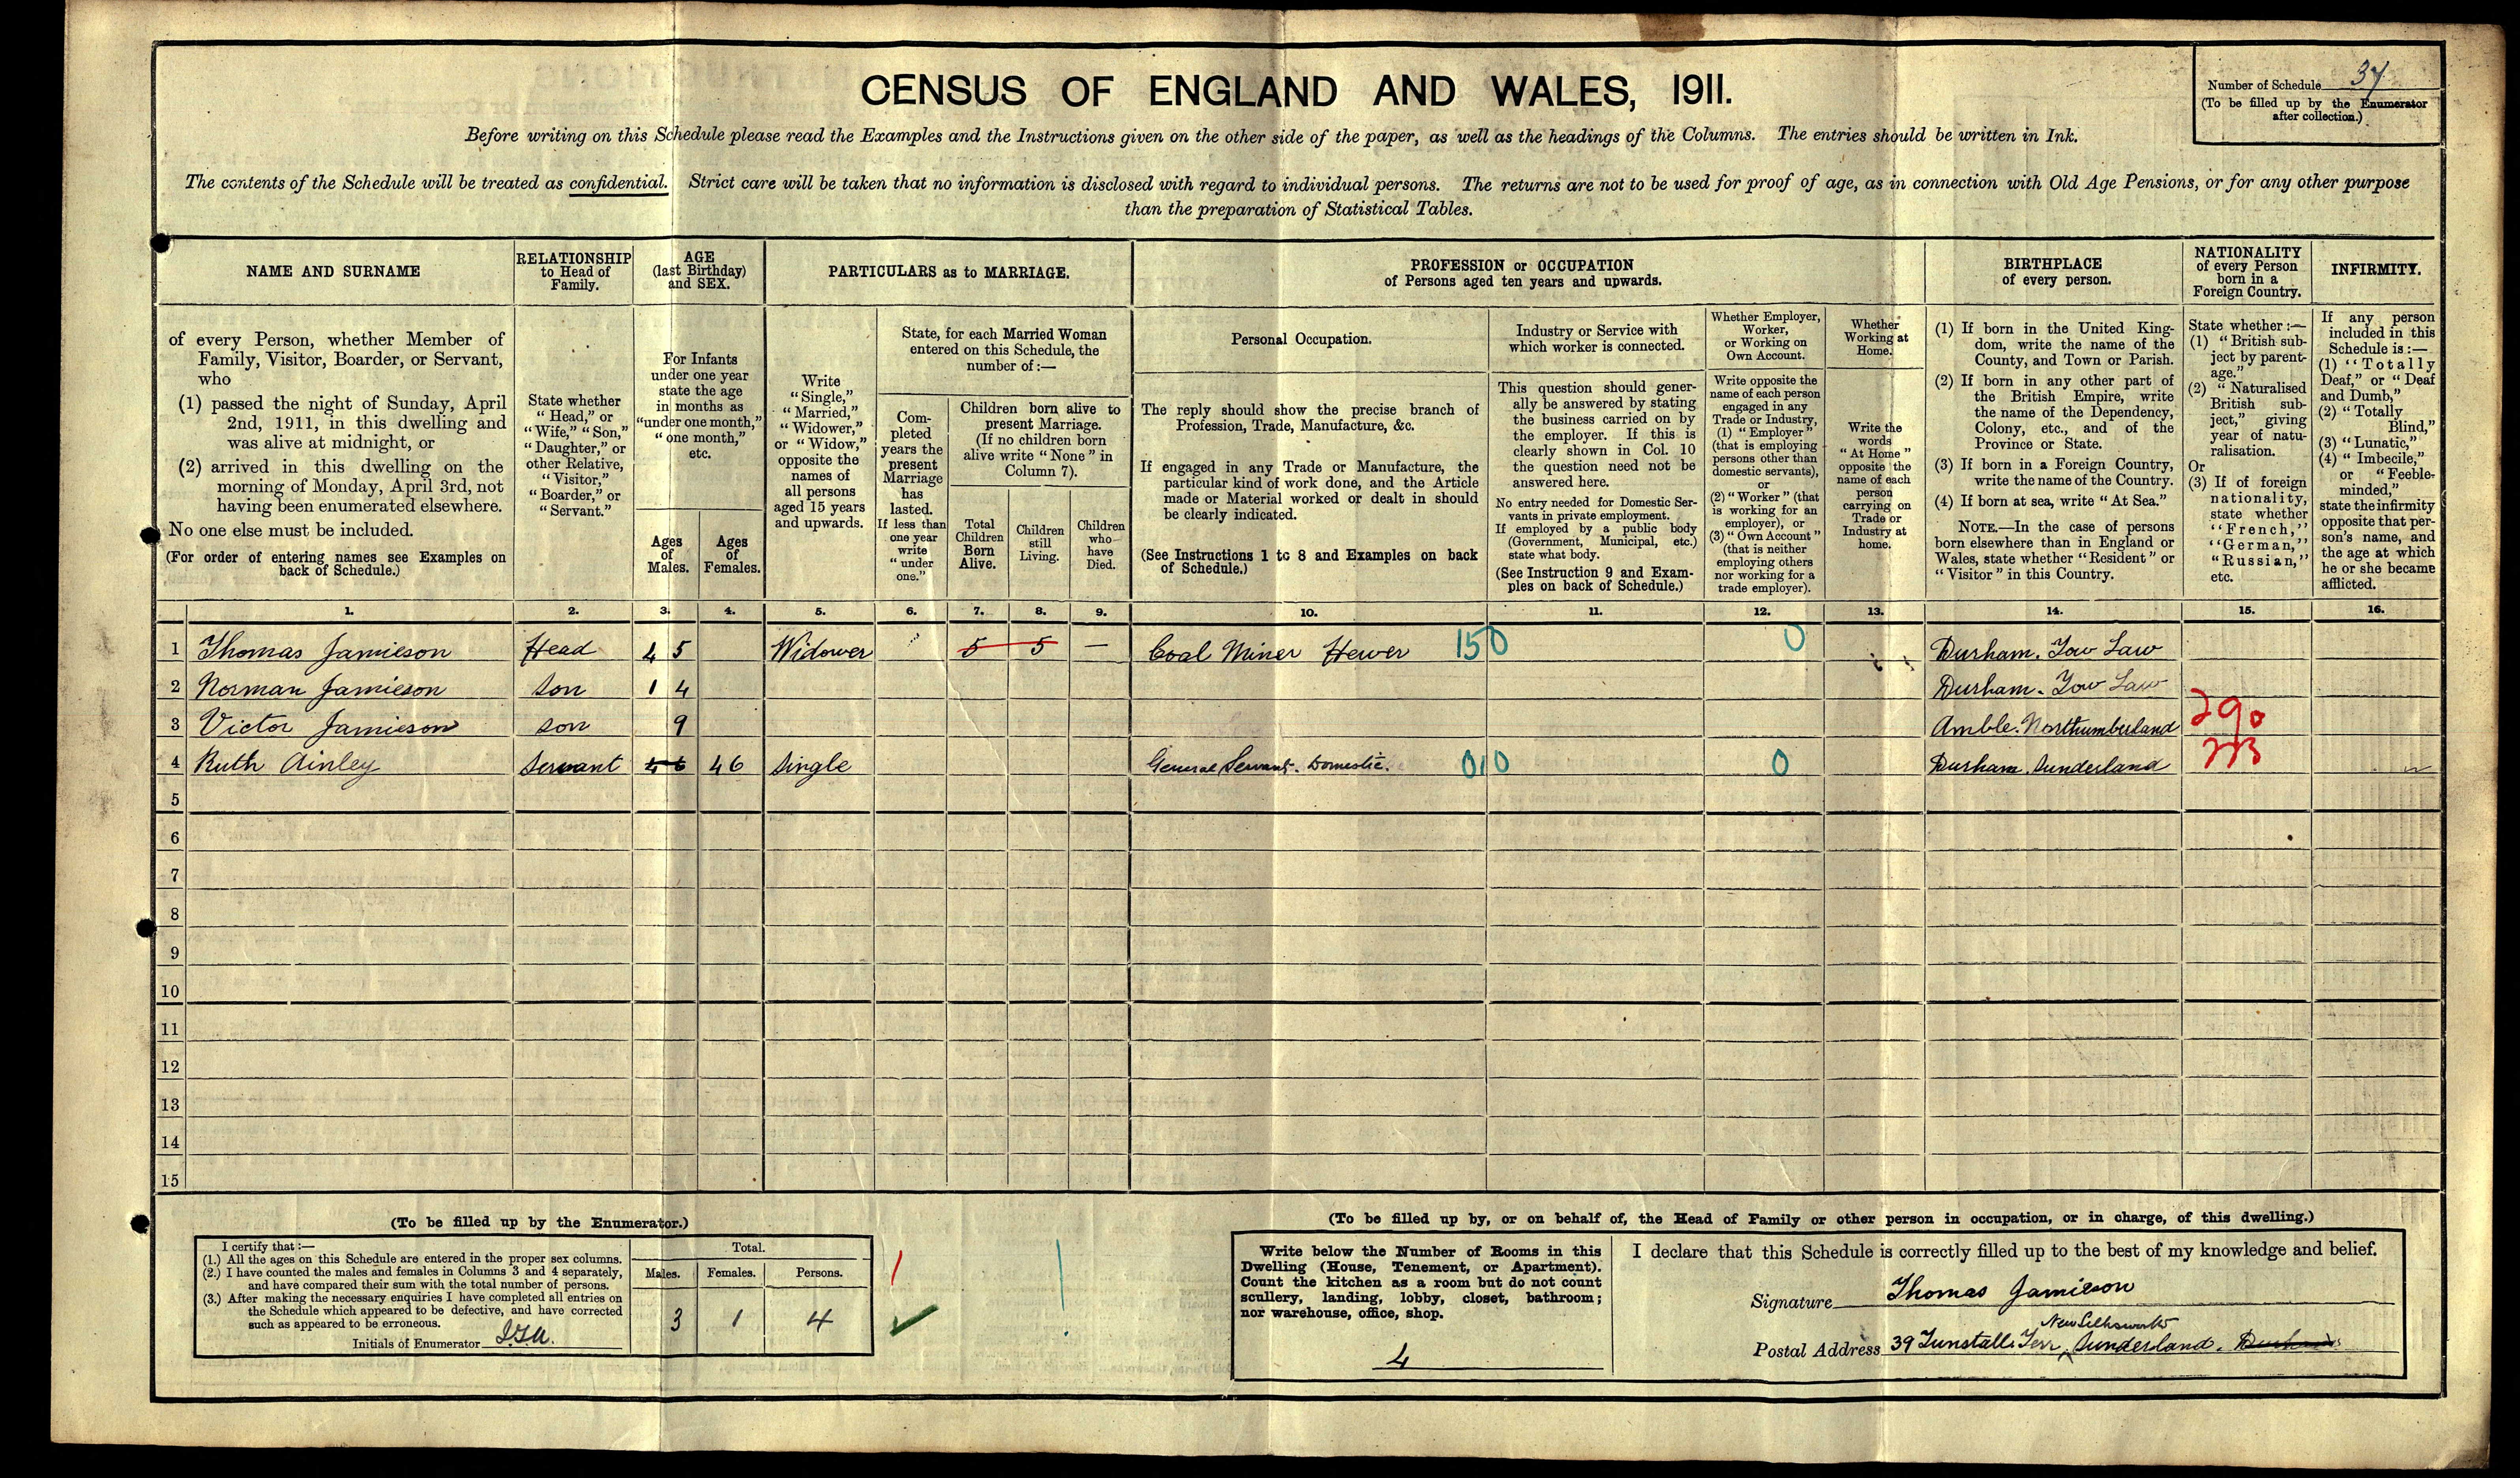 CENSUS OF ENGLAND AND WALES, 1911.
Number of Schedule 37
(To be filled up by the Enumerator
after collection.)
Before writing on this Schedule please read the Examples and the Instructions given on the other side of the paper, as well as the headings of the Columns. The entries should be written in Ink.
The contents of the Schedule will be treated as confidential. Strict care will be taken that no information is disclosed with regard to individual persons. The returns are not to be used for proof of age, as in connection with Old Age Pensions, or for any other purpose
than the preparation of Statistical Tables.
NAME AND SURNAME
of every Person, whether Member of
Family, Visitor, Boarder, or Servant,
who
(1) passed the night of Sunday, April
2nd, 1911, in this dwelling and
was alive at midnight, or
(2) arrived in this dwelling on the
morning of Monday, April 3rd, not
having been enumerated elsewhere.
No one else must be included.
(For order of entering names see Examples on
back of Schedule.)
RELATIONSHIP
to Head of
Family.
State whether
"Head," or
"Wife," "Son,"
"Daughter," or
other Relative,
"Visitor,"
"Boarder," or
"Servant."
AGE
(last Birthday)
and SEX.
For Infants
under one year
state the age
in months as
"under one month,"
"one month,"
etc.
Ages
of
Males.
Ages
of
Females.
PARTICULARS as to MARRIAGE.
Write
"Single,"
"Married,"
"Widower,"
or "Widow,"
opposite the
names of
all persons
aged 15 years
and upwards.
State, for each Married Woman
entered on this Schedule, the
number of:—
Com-
pleted
years the
present
Marriage
has
lasted.
If less than
one year
write
"under
one."
Children born alive to
present Marriage.
(If no children born
alive write "None" in
Column 7).
Total
Children
Born
Alive.
Children
still
Living.
Children
who
have
Died.
PROFESSION or OCCUPATION
of Persons aged ten years and upwards.
Personal Occupation.
The reply should show the precise branch of
Profession, Trade, Manufacture, &c.
If engaged in any Trade or Manufacture, the
particular kind of work done, and the Article
made or Material worked or dealt in should
be clearly indicated.
(See Instructions 1 to 8 and Examples on back
of Schedule.)
Industry or Service with
which worker is connected.
This question should gener-
ally be answered by stating
the business carried on by
the employer. If this is
clearly shown in Col. 10
the question need not be
answered here.
No entry needed for Domestic Ser-
vants in private employment.
If employed by a public body
(Government, Municipal, etc.)
state what body.
(See Instruction 9 and Exam-
ples on back of Schedule.)
Whether Employer,
Worker,
or Working on
Own Account.
Write opposite the
name of each person
engaged in any
Trade or Industry,
(1) "Employer"
(that is employing
persons other than
domestic servants),
or
(2) "Worker" (that
is working for an
employer), or
(3) "Own Account"
(that is neither
employing others
nor working for a
trade employer).
Whether
Working at
Home.
Write the
words
"At Home"
opposite the
name of each
person
carrying on
Trade or
Industry at
home.
BIRTHPLACE
of every person.
(1) If born in the United King-
dom, write the name of the
County, and Town or Parish.
(2) If born in any other part of
the British Empire, write
the name of the Dependency,
Colony, etc., and of the
Province or State.
(3) If born in a Foreign Country,
write the name of the Country.
(4) If born at sea, write "At Sea."
NOTE.—In the case of persons
born elsewhere than in England or
Wales, state whether "Resident" or
"Visitor" in this Country.
NATIONALITY
of every Person
born in a
Foreign Country.
State whether:—
(1) "British sub-
ject by parent-
age."
(2) "Naturalised
British sub-
ject," giving
year of natu-
ralisation.
Or
(3) If of foreign
nationality,
state whether
"French,"
"German,"
"Russian,"
etc.
INFIRMITY.
If any person
included in this
Schedule is:—
(1) "Totally
Deaf," or "Deaf
and Dumb,"
(2) "Totally
Blind,"
(3) "Lunatic,"
(4) "Imbecile,"
or "Feeble-
minded,"
state the infirmity
opposite that per-
son's name, and
the age at which
he or she became
afflicted.
1. 2. 3. 4. 5. 6. 7. 8. 9. 10. 11. 12. 13. 14. 15. 16.
1 Thomas Jamieson Head 45 Widower 5 5 — Coal Miner Hewer 150 0 Durham. Tow Law
2 Norman Jamieson Son 14 Durham. Tow Law
3 Victor Jamieson son 9 Amble. Northumberland 290
4 Ruth Ainley Servant 46 46 Single General Servant. Domestic. 010 0 Durham. Sunderland
5
6
7
8
9
10
11
12
13
14
15
(To be filled up by the Enumerator.)
I certify that:—
(1.) All the ages on this Schedule are entered in the proper sex columns.
(2.) I have counted the males and females in Columns 3 and 4 separately,
and have compared their sum with the total number of persons.
(3.) After making the necessary enquiries I have completed all entries on
the Schedule which appeared to be defective, and have corrected
such as appeared to be erroneous.
Initials of Enumerator
Total.
Males. Females. Persons.
3 1 4
(To be filled up by, or on behalf of, the Head of Family or other person in occupation, or in charge, of this dwelling.)
Write below the Number of Rooms in this
Dwelling (House, Tenement, or Apartment).
Count the kitchen as a room but do not count
scullery, landing, lobby, closet, bathroom;
nor warehouse, office, shop.
4
I declare that this Schedule is correctly filled up to the best of my knowledge and belief.
Signature Thomas Jamieson
New Silksworth
Postal Address 39 Tunstall Terr, Sunderland. Durham